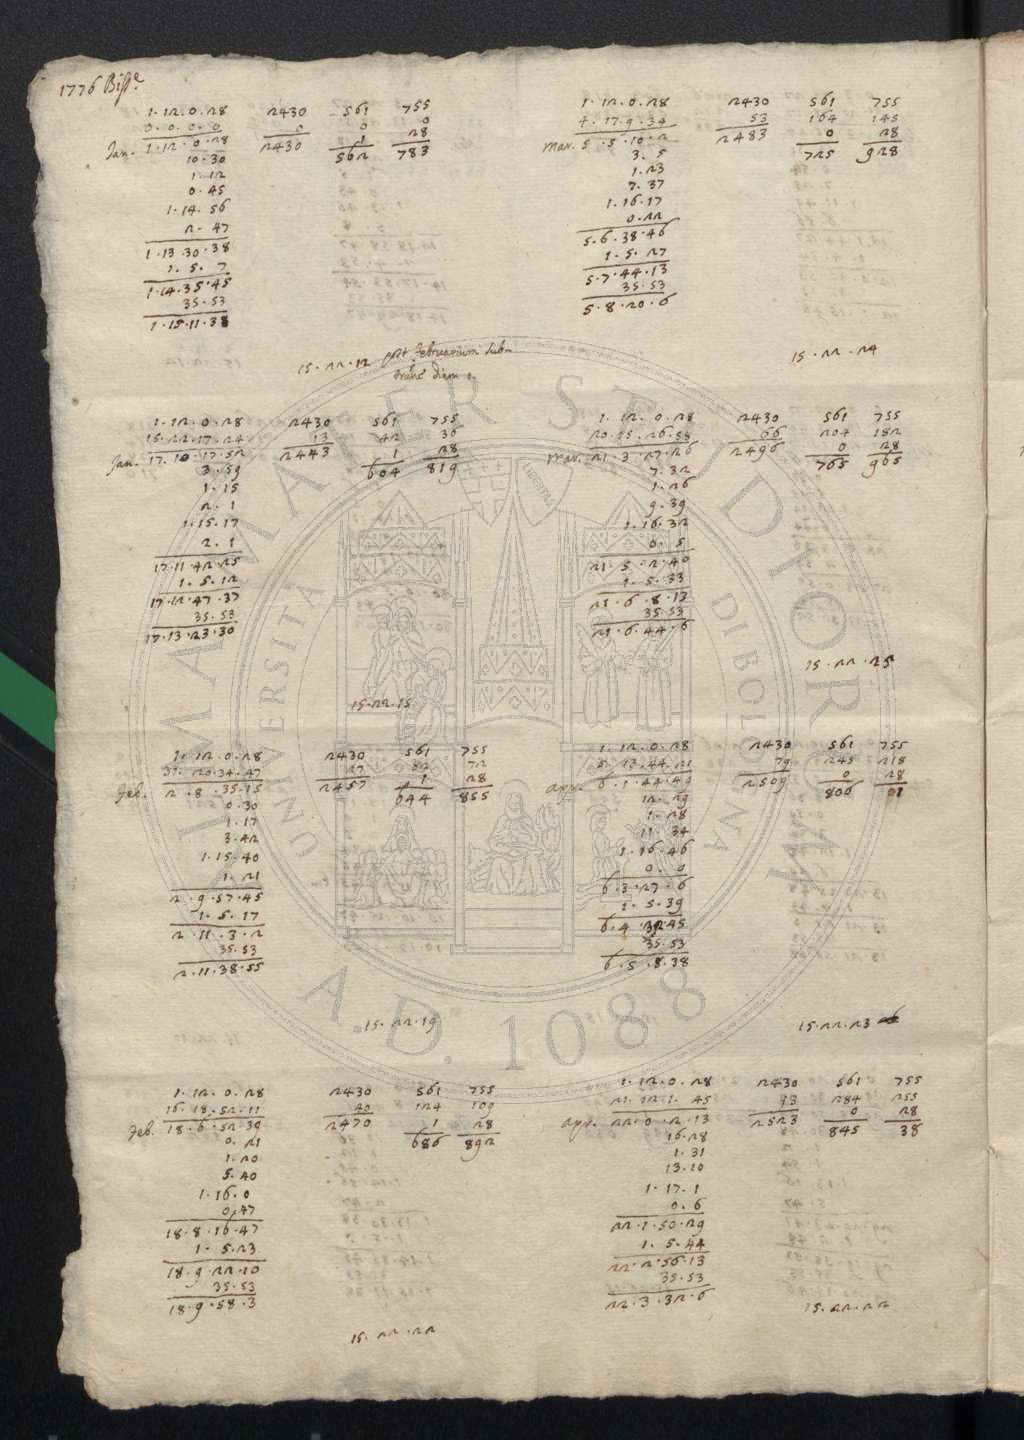 1776 Biss.e
1. 12. 0. 28 2430 561 755
0. 0. 0. 0 0 0 0
Jan. 1. 12. 0. 28 2430 1 28
10. 30 562 783
1. 12
0. 45
1. 14. 56
2. 47
1. 13. 30. 38
1. 5. 7
1. 14. 35. 45
35. 53
1. 15. 11. 38
15. 22. 12 post Februarium sub-
trahe diem 1.
1. 12. 0. 28 2430 561 755
15. 22. 17. 24 13 42 36
Jan. 17. 10. 17. 52 2443 1 28
3. 59 604 819
1. 15
2. 1
1. 15. 17
2. 1
17. 11. 42. 25
1. 5. 12
17. 12. 47. 37
35. 53
17. 13. 23. 30
15. 22. 15
1. 12. 0. 28 2430 561 755
31. 20. 34. 47 27 82 72
Feb. 2. 8. 35. 15 2457 1 28
0. 30 644 855
1. 17
3. 42
1. 15. 40
1. 21
2. 9. 57. 45
1. 5. 17
2. 11. 3. 2
35. 53
2. 11. 38. 55
15. 22. 19
1. 12. 0. 28 2430 561 755
16. 18. 52. 11 40 124 109
Feb. 18. 6. 52. 39 2470 1 28
0. 21 686 892
1. 20
5. 40
1. 16. 0
0. 47
18. 8. 16. 47
1. 5. 23
18. 9. 22. 10
35. 53
18. 9. 58. 3
15. 22. 22
1. 12. 0. 28 2430 561 755
4. 17. 9. 34 53 164 145
Mar. 5. 5. 10. 2 2483 0 28
3. 5 725 928
1. 23
7. 37
1. 16. 17
0. 22
5. 6. 38. 46
1. 5. 27
5. 7. 44. 13
35. 53
5. 8. 20. 6
15. 22. 24
1. 12. 0. 28 2430 561 755
20. 15. 26. 58 66 204 182
Mar. 21. 3. 27. 26 2496 0 28
7. 32 765 965
1. 26
9. 39
1. 16. 32
0. 5
21. 5. 2. 40
1. 5. 33
21. 6. 8. 13
35. 53
21. 6. 44. 6
15. 22. 25
1. 12. 0. 28 2430 561 755
5. 13. 44. 21 79 245 218
apr. 6. 1. 44. 49 2509 0 28
12. 29 806 01
1. 28
11. 34
1. 16. 46
0. 0
6. 3. 27. 6
1. 5. 39
6. 4. 32. 45
35. 53
6. 5. 8. 38
15. 22. 23
1. 12. 0. 28 2430 561 755
21. 12. 1. 45 93 284 255
apr. 22. 0. 2. 13 2523 0 28
16. 28 845 38
1. 31
13. 10
1. 17. 1
0. 6
22. 1. 50. 29
1. 5. 44
22. 2. 56. 13
35. 53
22. 3. 32. 6
15. 22. 22
ALMA MATER STUDIORUM
UNIVERSITÀ DI BOLOGNA
A.D. 1088